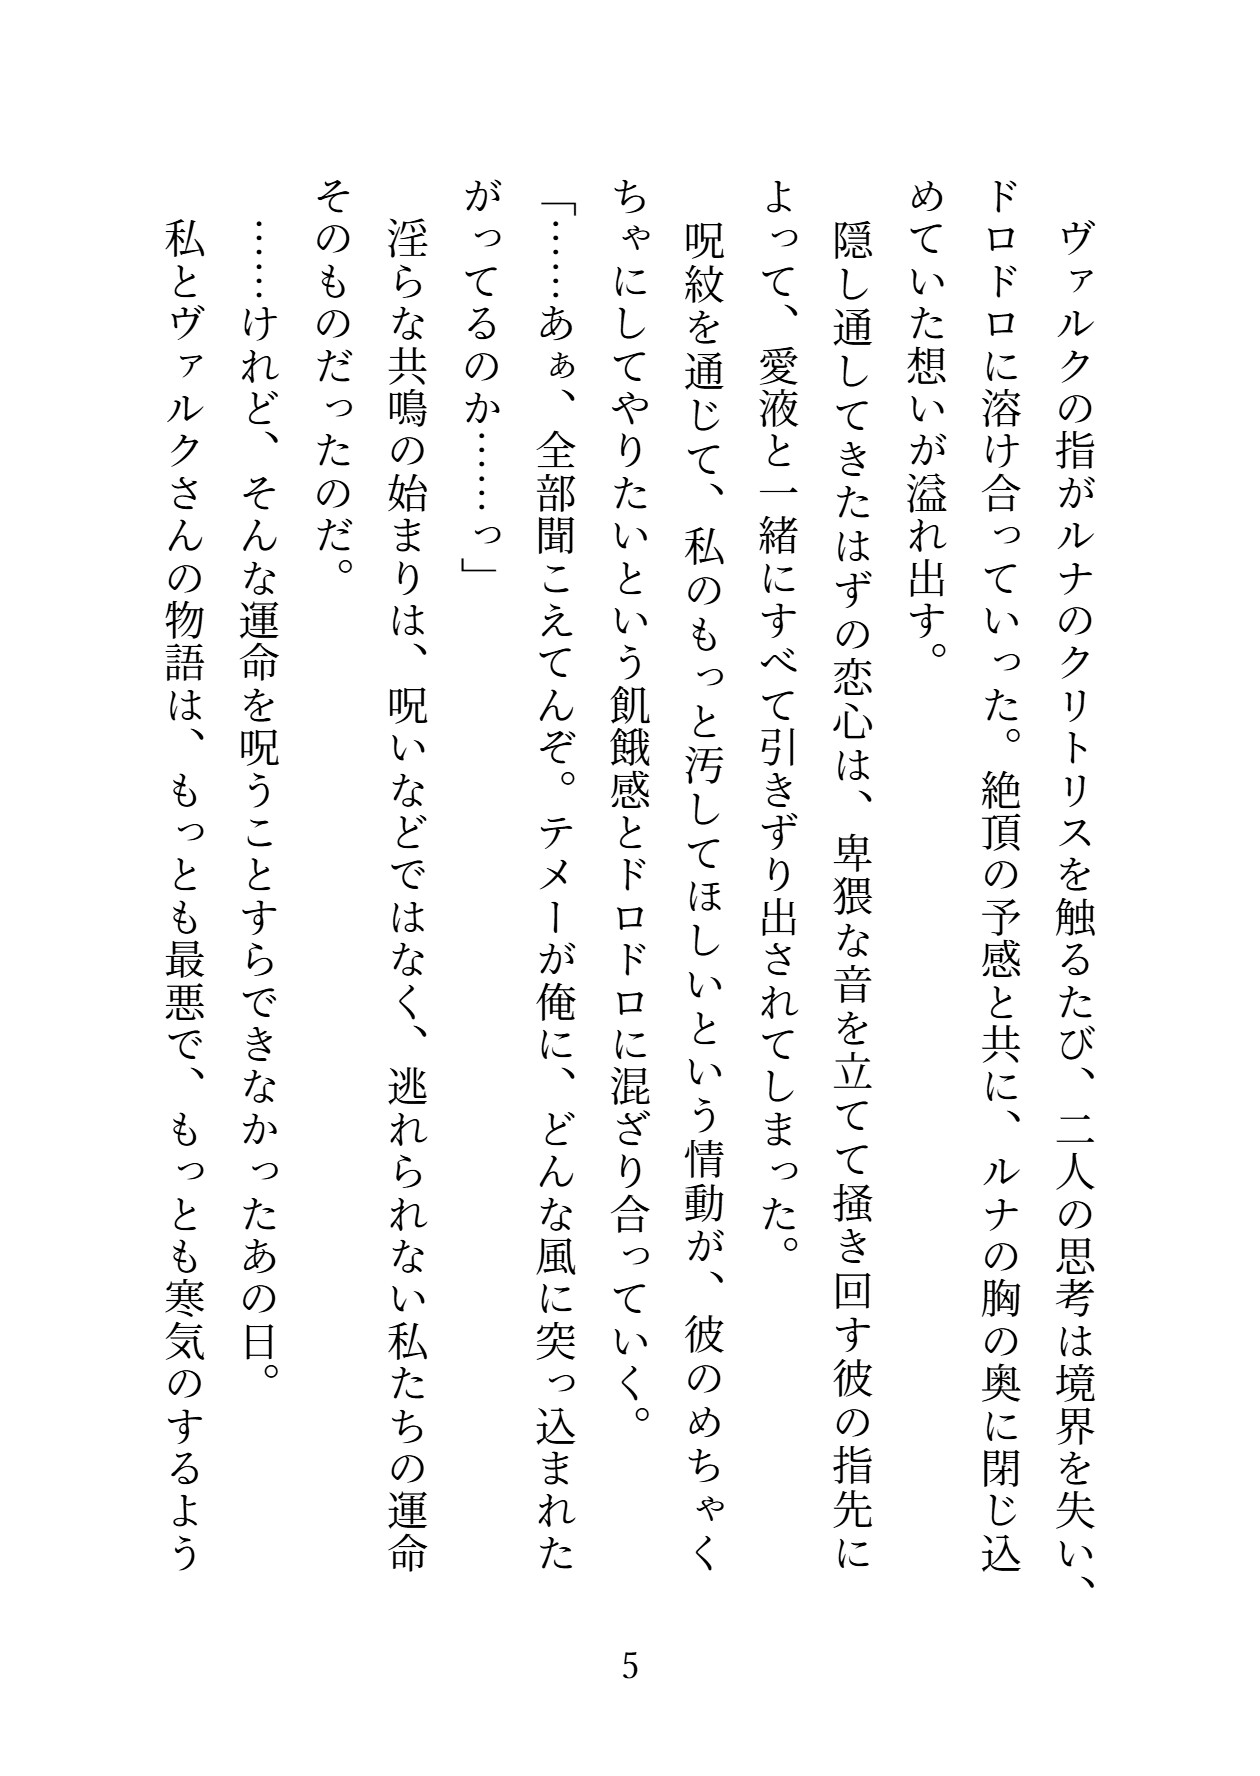 ヴァルクの指がルナのクリトリスを触るたび、二人の思考は境界を失い、
ドロドロに溶け合っていった。絶頂の予感と共に、ルナの胸の奥に閉じ込
めていた想いが溢れ出す。
隠し通してきたはずの恋心は、卑猥な音を立てて掻き回す彼の指先に
よって、愛液と一緒にすべて引きずり出されてしまった。
呪紋を通じて、私のもっと汚してほしいという情動が、彼のめちゃく
ちゃにしてやりたいという飢餓感とドロドロに混ざり合っていく。
「……あぁ、全部聞こえてんぞ。テメーが俺に、どんな風に突っ込まれた
がってるのか……っ」
淫らな共鳴の始まりは、呪いなどではなく、逃れられない私たちの運命
そのものだったのだ。
……けれど、そんな運命を呪うことすらできなかったあの日。
私とヴァルクさんの物語は、もっとも最悪で、もっとも寒気のするよう
5